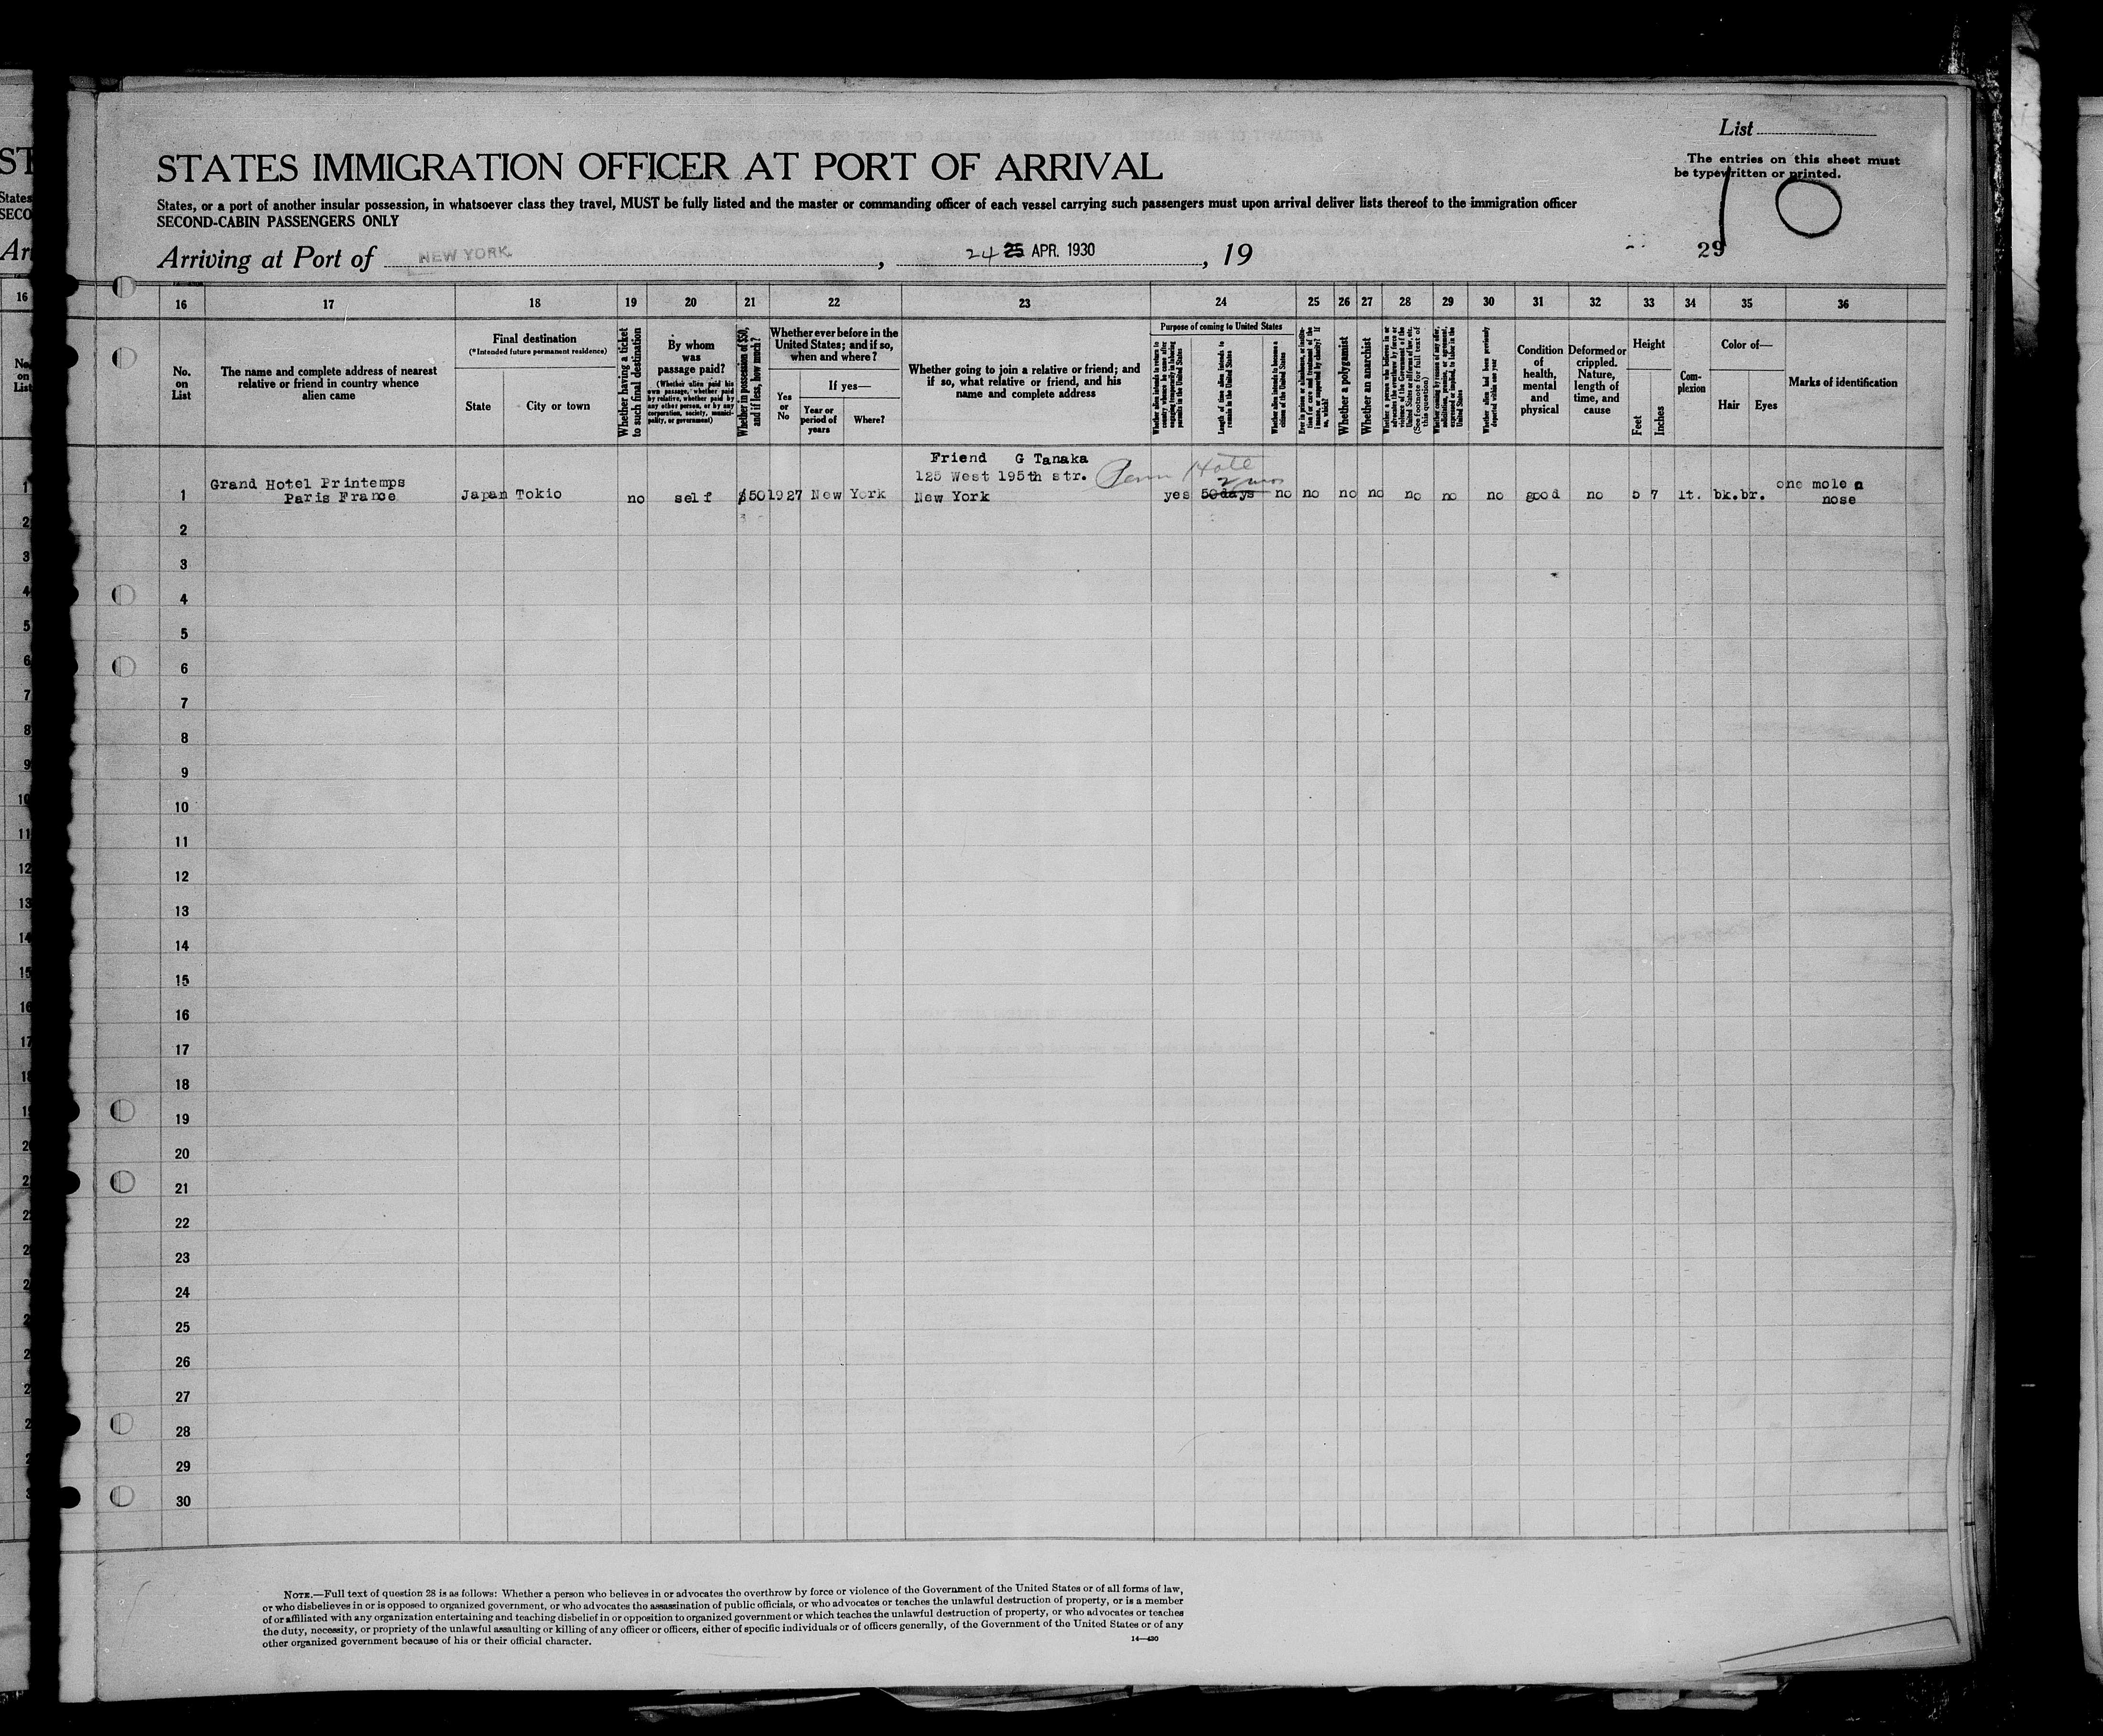 List
The entries on this sheet must
be typewritten or printed.
10
29
STATES IMMIGRATION OFFICER AT PORT OF ARRIVAL
States, or a port of another insular possession, in whatsoever class they travel, MUST be fully listed and the master or commanding officer of each vessel carrying such passengers must upon arrival deliver lists thereof to the immigration officer
SECOND-CABIN PASSENGERS ONLY
Arriving at Port of NEW YORK, 24 25 APR. 1930, 19
16 17 18 19 20 21 22 23 24 25 26 27 28 29 30 31 32 33 34 35 36
No.
on
List
The name and complete address of nearest
relative or friend in country whence
alien came
Final destination
(*Intended future permanent residence)
State
City or town
Whether having a ticket
to such final destination
By whom
was
passage paid?
(Whether alien paid his
own passage, whether paid
by relative, whether paid by
any other person, or by any
corporation, society, munici-
pality, or government)
Whether in possession of $50,
and if less, how much?
Whether ever before in the
United States; and if so,
when and where?
Yes
or
No
If yes—
Year or
period of
years
Where?
Whether going to join a relative or friend; and
if so, what relative or friend, and his
name and complete address
Purpose of coming to United States
Whether alien intends to return to
country whence he came after
engaging temporarily in laboring
pursuits in the United States
Length of time alien intends to
remain in the United States
Whether alien intends to become a
citizen of the United States
Ever in prison or almshouse, or institu-
tion for care and treatment of the
insane, or supported by charity? If
so, which?
Whether a polygamist
Whether an anarchist
Whether a person who believes in or
advocates the overthrow by force or
violence of the Government of the
United States or all forms of law, etc.
(See footnote for full text of
this question)
Whether coming by reason of any offer,
solicitation, promise, or agreement,
expressed or implied, to labor in the
United States
Whether alien had been previously
deported within one year
Condition
of
health,
mental
and
physical
Deformed or
crippled.
Nature,
length of
time, and
cause
Height
Feet
Inches
Com-
plexion
Color of—
Hair
Eyes
Marks of identification
Friend G Tanaka
125 West 195th str.
Grand Hotel Printemps one mole
1 Paris France Japan Tokio no self $50 1927 New York New York yes 50 days no no no no no no no good no 5 7 lt. bk. br. nose
2 mos
2
3
4
5
6
7
8
9
10
11
12
13
14
15
16
17
18
19
20
21
22
23
24
25
26
27
28
29
30
NOTE.—Full text of question 28 is as follows: Whether a person who believes in or advocates the overthrow by force or violence of the Government of the United States or of all forms of law,
or who disbelieves in or is opposed to organized government, or who advocates the assassination of public officials, or who advocates or teaches the unlawful destruction of property, or is a member
of or affiliated with any organization entertaining and teaching disbelief in or opposition to organized government or which teaches the unlawful destruction of property, or who advocates or teaches
the duty, necessity, or propriety of the unlawful assaulting or killing of any officer or officers, either of specific individuals or of officers generally, of the Government of the United States or of any
other organized government because of his or their official character.
14—430